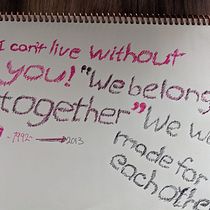 I can't live without
you! "We belong
together" We we
made for
each othe
1992 2013